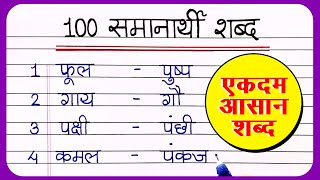 100 समानार्थी शब्द
1 फूल - पुष्प
2 गाय - गौ
3 पक्षी - पंछी
4 कमल - पंकज
एकदम
आसान
शब्द